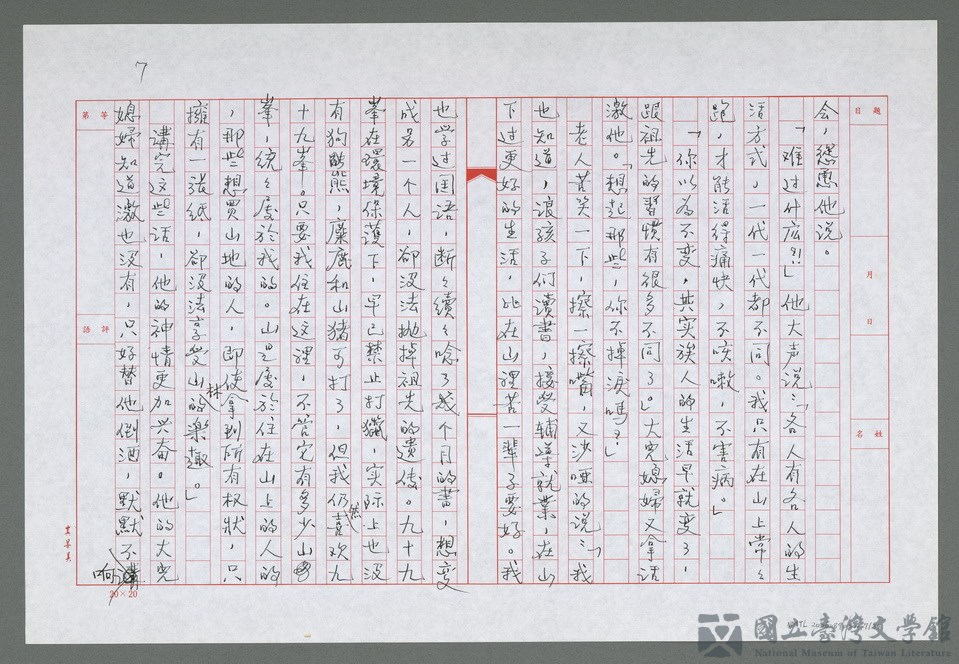 7
題目
月
日
姓名
等第
評語
会，慫恿他說。
「难过什広⁈」他大声說：「各人有各人的生
活方式，一代一代都不同。我只有在山上常々
跑，才能活得痛快，不咳嗽，不害病。」
「你以為不変，其实族人的生活早就变了，
跟祖先的習慣有很多不同了。」大兄媳婦又拿話
激他。「想起那些，你不掉淚嗎？」
老人苦笑一下，擦一擦嘴，又沙啞的說：「我
也知道，浪孩子们讀書，接受輔導就業，在山
下过更好的生活，比在山裡苦一輩子要好。我
也学过囯语，断々續々唸了幾个月的書，想变
成另一个人，卻沒法抛掉祖先的遺传。九十九
峯在環境保護下，早已禁止打獵，实际上也沒
有狗熊，麋鹿和山猪可打了，但我仍然喜欢九
十九峯。只要我住在这裡，不管它有多少山
峯，統々屬於我的。山是屬於住在山上的人的
，那些想買山地的人，即使拿到所有权狀，只
擁有一張紙，卻沒法享受山林的樂趣。」
講完这些话，他的神情更加兴奋。他的大兄
媳婦知道激也沒有，只好替他倒酒，默默不响
20×20
國立臺灣文學館
National Museum of Taiwan Literature